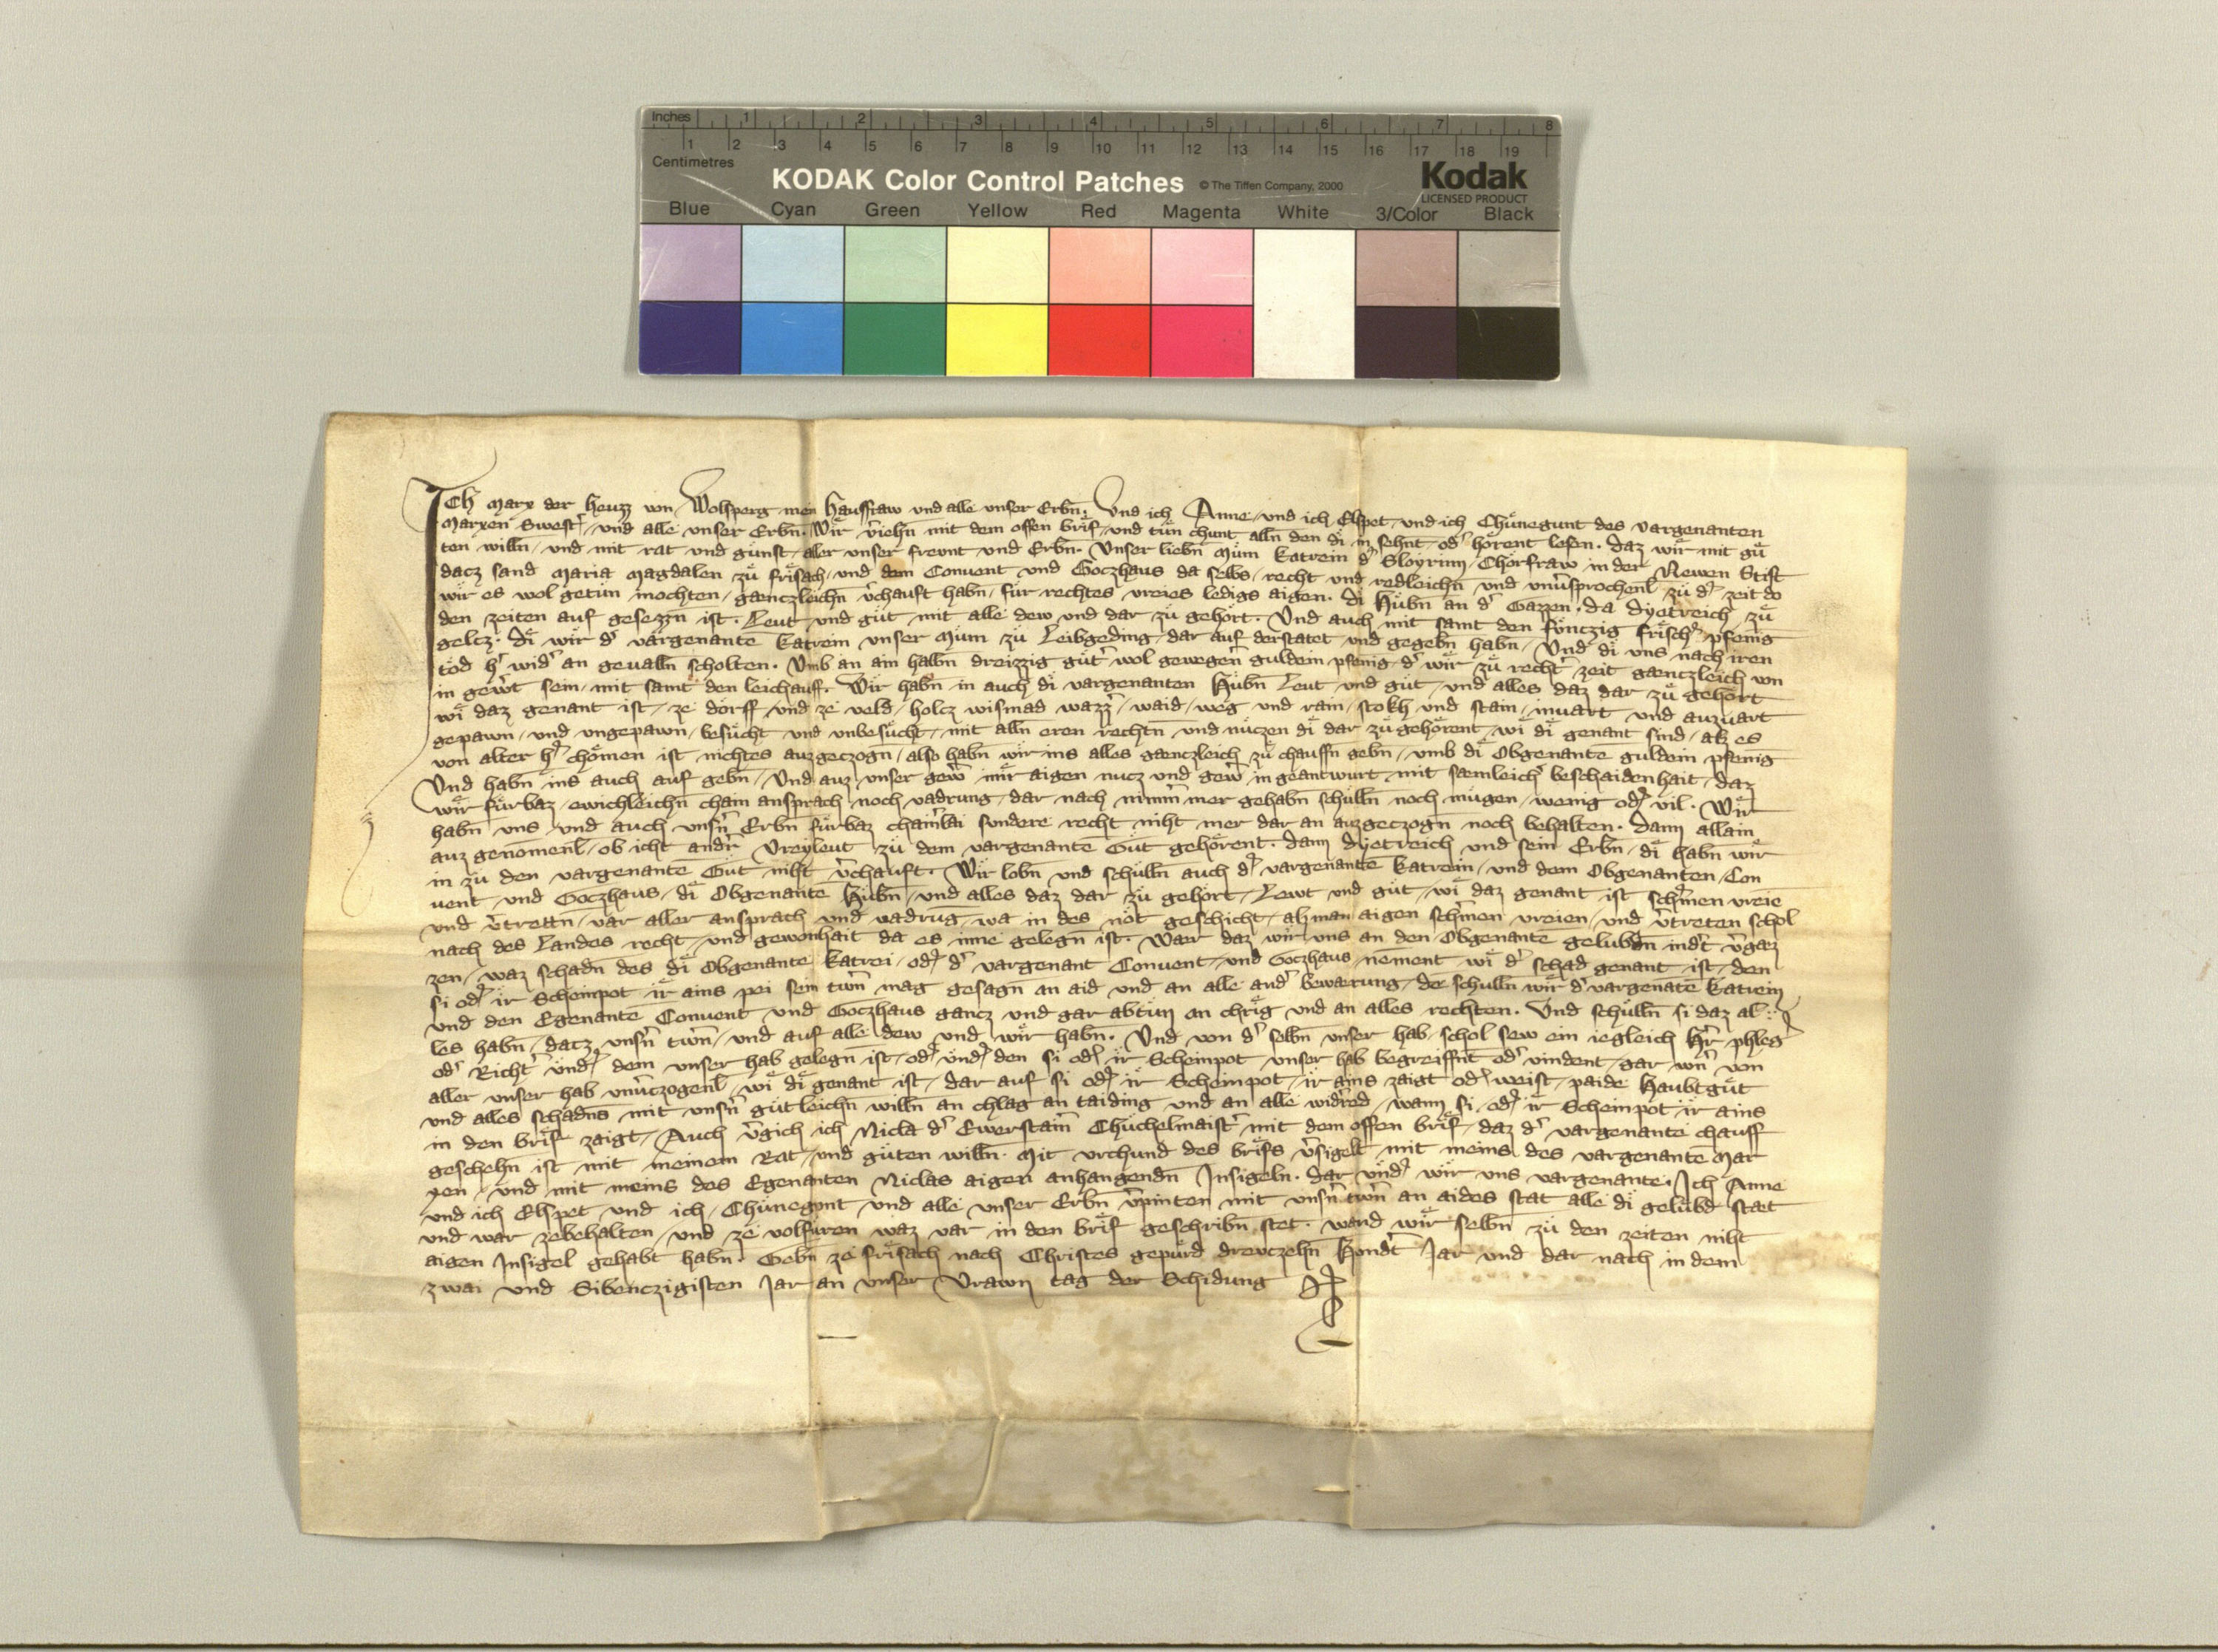 Inches 1 2 3 4 5 6 7 8
1 2 3 4 5 6 7 8 9 10 11 12 13 14 15 16 17 18 19
Centimetres
KODAK Color Control Patches © The Tiffen Company, 2000 Kodak
LICENSED PRODUCT
Blue Cyan Green Yellow Red Magenta White 3/Color Black
Ich Marx der Heuzz von Wolfperg mein Hausfraw und alle unser Erbn̄. Und ich Anne und ich Elspet und ich Chuͤnegunt des vargenanten
Marxen Swest͛ und alle unser Erbn̄. Wir v͛iehn̄ mit dem offen brif und tuͤn chunt alln̄ den di in sehnt od͛ hoͤrent lesen. daz wir mit guͤ
ten willn̄ und mit rat und gunst aller unser freunt und Erbn̄. Unser liebn̄ Muͤm Katrein d͛ Chorfraw in der Newen Stift
dacz sand Maria Magdalen zuͤ frisach und dem Convent und Goczhaus da selbs recht und redleichn̄ und zuͤ d͛ zeit do
wir es wol getun mochten gaenczleichn̄ v͛chauft habn̄ fuͤr rechtes vreies ledigs aigen. di Huͤbn̄ an d͛ Gazzen. da dyetreich zuͤ
den zeiten auf gesezzn̄ ist. Leut und guͤt mit alle dew und dar zuͤ gehoͤrt. Und auch mit samt den fuͤnczig frisch͛ pfenig
geltz. di wir d͛ vargenante Katrein unser Muͤm zuͤ Leibgeding dar auf derstatet und gegebn̄ habn̄ Und di uns nach iren
tod h͛ wid͛ an gevalln̄ scholten. Umb an ain halbn̄ dreizzig guͤt͛ wol gewegen͛ guldein pfenig d͛ wir zuͤ recht͛ zeit gaenczleich von
in gew͛t sein mit samt den leichauff. Wir habn̄ in auch di vargenanten Huͤbn̄ Leut und guͤt und alles daz dar zuͤ gehoͤrt
wi daz genant ist ze dorff und ze veld holcz wismad wazz͛ waid weg und rain stokh und stain invart und auzvart
gepawn und ungepawn besuͤcht und unbesuͤcht mit alln̄ eren rechtn̄ und nuczen di dar zuͤ gehoͤrent wi di genant sind alz es
von alter h͛ choͤmen ist nichtes auzgeczogn̄ also habn̄ wir ins alles gaenczleich zuͤ chauffn̄ gebn̄ umb di Obgenante guldein pfenig
Und habn̄ ins auch auf gebn̄ Und auz unser gew͛ in ir aigen nucz und gew͛ in geantwurt mit saemleich͛ beschaidenhait daz
wir fuͤrbaz ewichleichn̄ chain ansprach noch vadrung dar nach nimm͛ mer gehabn̄ schulln̄ noch muͤgen wenig od͛ vil. Wir
habn̄ uns und auch unsn͛ Erbn̄ fuͤrbaz sundere recht niht mer dar an auzgeczogn̄ noch behalten. dann allain
auz genomenl̄ ob icht and͛r Vreyleut zuͤ dem vargenante Guͤt gehoͤrent. dann dyetreich und sein Erbn̄ di habn̄ wir
in zuͤ den vargenante Guͤt niht v͛chauft. Wir lobn̄ und schulln̄ auch d͛ vargenante Katrein und dem Obgenanten Con
vent und Goczhaus di Obgenante Huͤbn̄ und alles daz dar zuͤ gehoͤrt Lewt und guͤt wi daz genant ist sch͛men vreie
und v͛tretn̄ var aller ansprach und vadrūg wa in des noͤt geschicht alz man aigen sch͛men vreien und v͛treten schol
nach des Landes recht und gewonhait da es inne gelegn̄ ist. Waer daz wir uns an den Obgenante geluͤbdn̄ v͛gaz
zen waz schadn̄ des di Obgenante Katrei od͛ d͛ vargenant Convent und Goczhaus nement wi d͛ schad genant ist den
si od͛ ir Scheinpot ir ains pei sein tr̄wn mag gesagn̄ an aid und an alle and͛ bewaerung de schulln̄ wir d͛ vargenāte Katrein
und den Egenante Convent und Goczhaus gancz und gar abtuͤn an chrig und an alles rechten. Und schulln̄ si daz al
les habn̄ dacz unsn͛ tr̄wn und auf alle dew und wir habn̄. Und von d͛ selbn̄ unser hab schol sew ein iegleich H͛r phleg͛
od͛ Richt͛ und͛ dem unser hab gelegn̄ ist od͛ und͛ den si od͛ ir Scheinpot unser hab begreiffnt od͛ vindent gar w͛n von
aller unser hab unv͛czogenl̄ wi di genant ist dar auf si od͛ ir Scheinpot ir ains zaigt od͛ weist paide Haubtguͤt
und alles schadns mit unsn͛ guͤtleichn̄ willn̄ an chlag an taiding und an alle wid͛red wann si od͛ ir Scheinpot ir ains
in den brif zaigt. Auch v͛gich ich Nicla d͛ Ewerstain͛ Chuchelmaist͛ mit dem offen brif daz d͛ vargenante chauff
geschehn̄ ist mit meinem Rat und guͤten willn̄. Mit urchund des brifs v͛sigelt mit meins des vargenante Mar
xen und mit meins des Egenanten Niclas aigen anhangendn̄ Insigeln. dar und͛ wir uns vargenante. Ich Anne
und ich Elspet und ich Chuͤnegunt und alle unser Erbn̄ v͛pinten mit unsn͛ tr̄wn an aides stat alle di geluͤbd staet
und war zebehalten und ze volfuͤren waz var in den brif geschribn̄ stet. wand wir selbn̄ zuͤ den zeiten niht
aigen Insigel gehabt habn̄. Gebn̄ ze frisach nach Christes gepurd dreuczehn̄ Hundt͛ Jar und dar nach in dem
zwai und Sibenczigisten Jar an unser Vrawn tag der Schidung